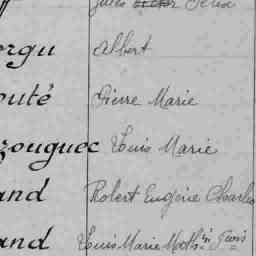 Jules Victor
orgu Albert
outé Pierre Marie
zouguec Louis Marie
and Robert Eugène Charles
and Louis Marie Math.in Fçois